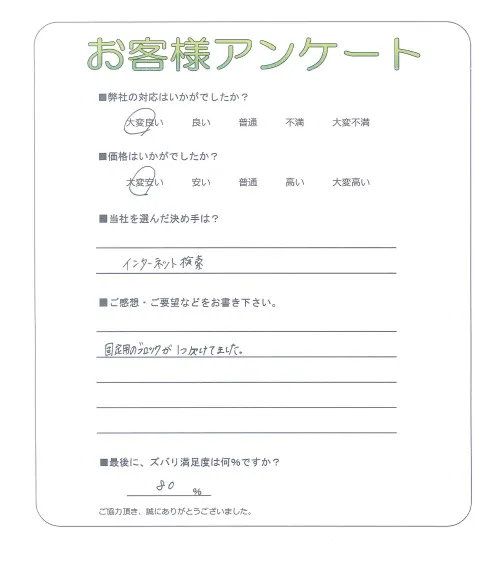 お客様アンケート
■弊社の対応はいかがでしたか？
大変良い 良い 普通 不満 大変不満
■価格はいかがでしたか？
大変安い 安い 普通 高い 大変高い
■当社を選んだ決め手は？
インターネット検索
■ご感想・ご要望などをお書き下さい。
固定用のブロックが1つ欠けてました。
■最後に、ズバリ満足度は何%ですか？
80 %
ご協力頂き、誠にありがとうございました。